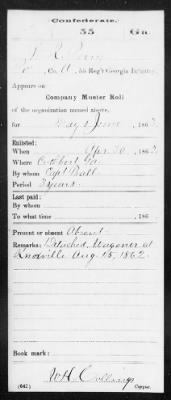 Confederate.
55 Ga.
J. R. Perry
Co. A, 55 Reg't Georgia Infantry.
Appears on
Company Muster Roll
of the organization named above,
for May & June, 186
Enlisted:
When Apr 30, 186
Where Cuthbert Ga.
By whom Capt Ball
Period 3 years
Last paid:
By whom
To what time , 186
Present or absent Absent
Remarks: Detached Wagoner at
Knoxville Aug 15, 1862.
Book mark:
W.H. Collings
(642) Copyist.